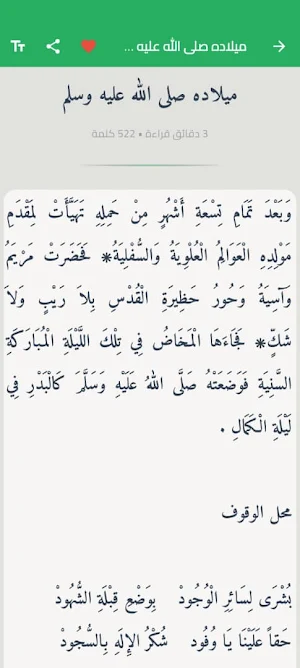 ميلاده صلى الله عليه ...
ميلاده صلى الله عليه وسلم
3 دقائق قراءة • 522 كلمة
وَبَعْدَ تَمَامِ تِسْعَةِ أَشْهُرٍ مِنْ حَمِلِهِ تَهَيَّأَتْ لِمَقْدَمِ
مَوْلِدِهِ الْعَوَالِمُ الْعُلْوِيَةُ وَالسُّفْلِيَةُ* فَحَضَرَتْ مَرْيَمُ
وَآسِيَةُ وَحُورُ حَظِيرَةِ الْقُدْسِ بِلاَ رَيْبٍ وَلاَ
شَكٍّ* فَجَاءَهَا الْمَخَاضُ فِي تِلْكَ اللَّيْلَةِ الْمُبَارَكَةِ
السَّنِيَةِ فَوَضَعَتْهُ صَلَّى اللهُ عَلَيْهِ وَسَلَّمَ كَالْبَدْرِ فِي
لَيْلَةِ الْكَمَالِ .
محل الوقوف
بُشْرَى لِسَائِرِ الْوُجُودْ بِوَضْعِ قِبْلَةِ الشُّهُودْ
حَقاً عَلَيْنَا يَا وُفُود شُكْرُ الإِلَهِ بِالسُّجُودْ
Tт